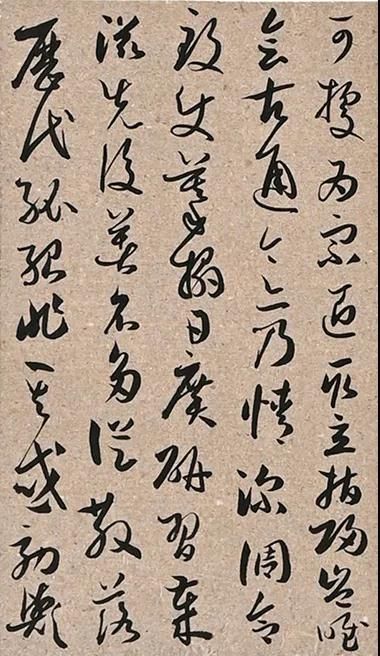 可據為宗匠取立指歸豈唯
會古通今亦乃情深調合
致使摹搨日廣研習歲
滋先後著名多從散落
歷代孤紹非其効歟